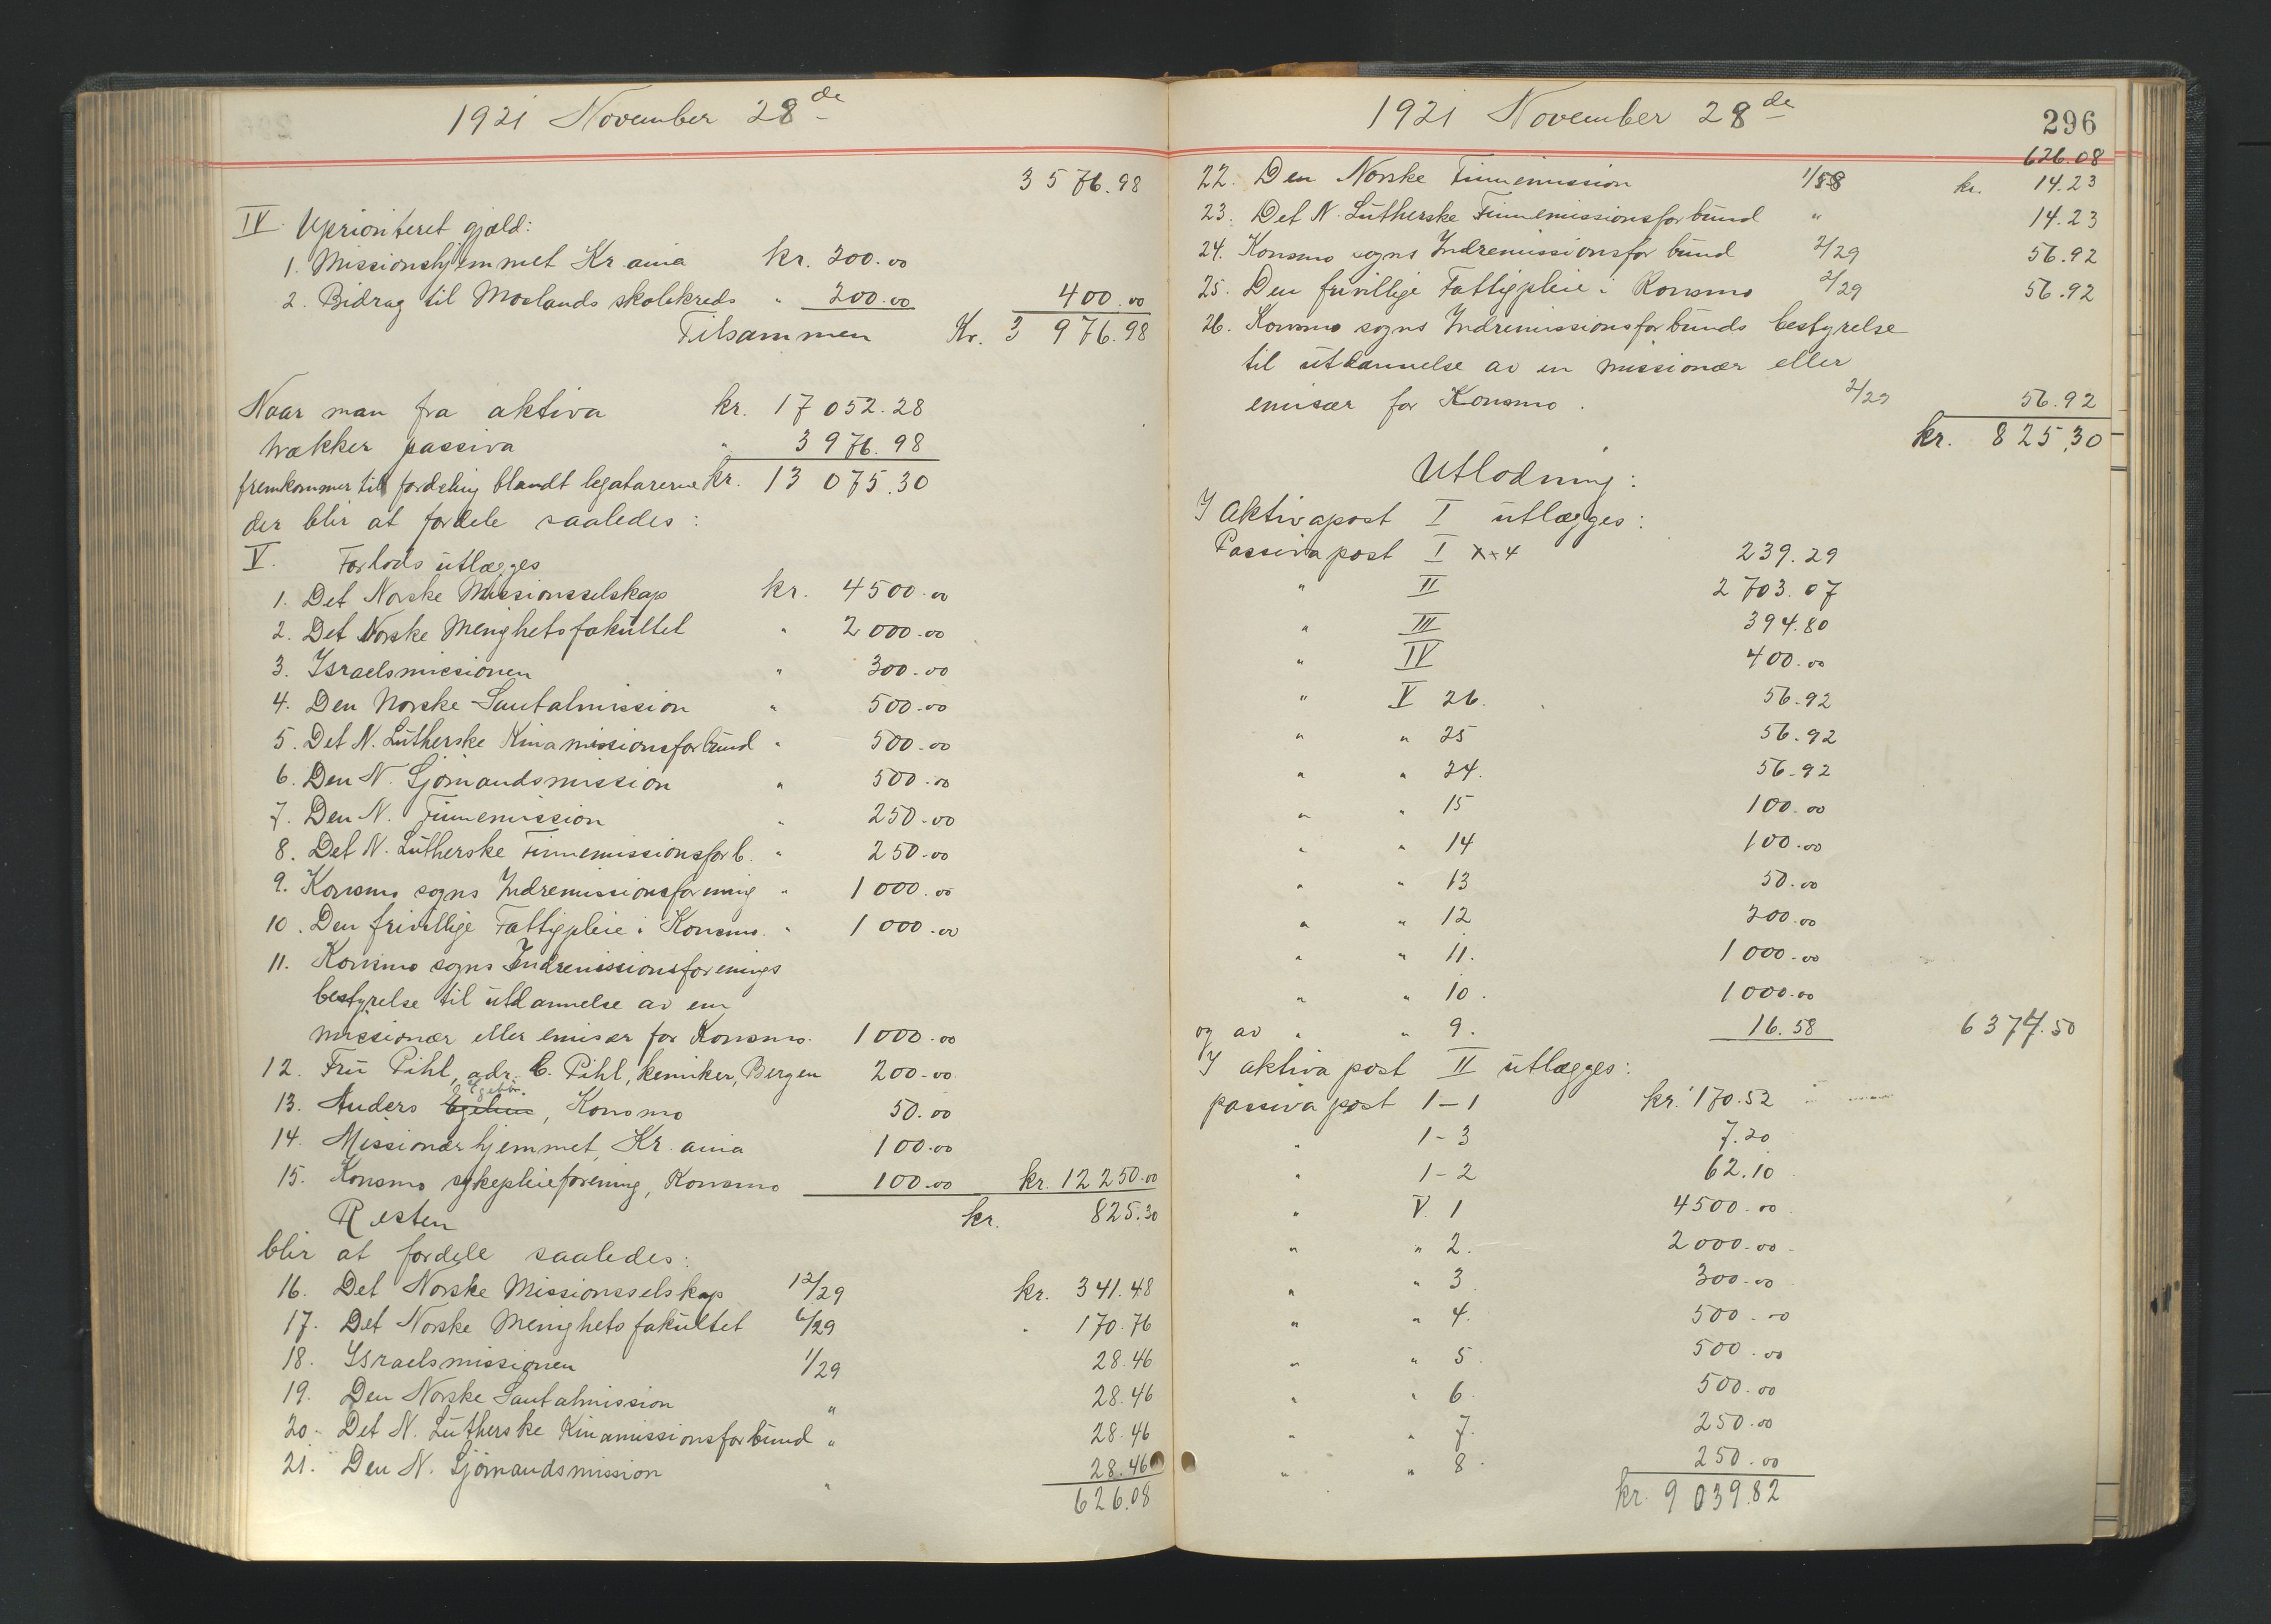 1921 November 28de
3576.98
IV. Uprioriteret gjæld:
1. Missionshjemmet Kr ania kr. 200.00
2. Bidrag til Moslands skolekreds " 200.00 400.00
Tilsammen Kr. 3 976.98
Naar man fra aktiva kr. 17 052.28
trækker passiva " 3 976.98
fremkommer til fordeling blandt legatarerne kr. 13 075.30
der blir at fordele saaledes:
V. Forlods utlægges
1. Det Norske Missionsselskap kr. 4500.00
2. Det Norske Menighetsfakultet " 2000.00
3. Israelsmissionen " 300.00
4. Den Norske Santalmission " 500.00
5. Det N. Lutherske Kinamissionsforbund " 500.00
6. Den N. Sjømandsmission " 500.00
7. Den N. Finnemission " 250.00
8. Det N. Lutherske Finnemissionsforb. " 250.00
9. Konsmo sogns Indremissionsforening " 1000.00
10. Den frivillige Fattigpleie i Konsmo. " 1000.00
11. Konsmo sogns Indremissionsforenings
bestyrelse til utdannelse av en
missionær eller emisær for Konsmo. 1000.00
12. Fru Pihl, adr. C. Pihl, kemiker, Bergen 200.00
13. Anders Konsmo 50.00
14. Missionærhjemmet, Kr. ania 100.00
15. Konsmo sykepleieforening, Konsmo 100.00 kr. 12 250.00
Resten kr. 825.30
blir at fordele saaledes:
16. Det Norske Missionsselskap 12/29 kr. 341.48
17. Det Norske Menighetsfakultet 6/29 " 170.76
18. Israelsmissionen 1/29 28.46
19. Den Norske Santalmission " 28.46
20. Det N. Lutherske Kinamissionsforbund " 28.46
21. Den N. Sjømandsmission " 28.46
626.08
1921 November 28de
296
626.08
22. Den Norske Finnemission 1/58 kr. 14.23
23. Det N. Lutherske Finnemissionsforbund " 14.23
24. Konsmo sogns Indremissionsforbund 2/29 56.92
25. Den frivillige Fattigpleie i Konsmo 2/29 56.92
26. Konsmo sogns Indremissionsforbunds bestyrelse
til utdannelse av en missionær eller
emisær for Konsmo. 2/29 56.92
kr. 825.30
Utlodning:
I Aktivapost I utlægges:
Passivapost I 4 239.29
" II 2 703.07
" III 394.80
" IV 400.00
" V 26. 56.92
" " 25 56.92
" " 24. 56.92
" " 15 100.00
" " 14 100.00
" " 13 50.00
" " 12 200.00
" " 11. 1 000.00
" " 10. 1 000.00
og av " " 9. 16.58 6374.50
I aktiva post II utlægges:
passiva post 1-1 kr. 170.52
" 1-3 7.20
" 1-2 62.10
" V. 1 4500.00
" " 2. 2000.00
" " 3 300.00
" " 4. 500.00
" " 5. 500.00
" " 6. 500.00
" " 7. 250.00
" " 8. 250.00
kr. 9 039.82